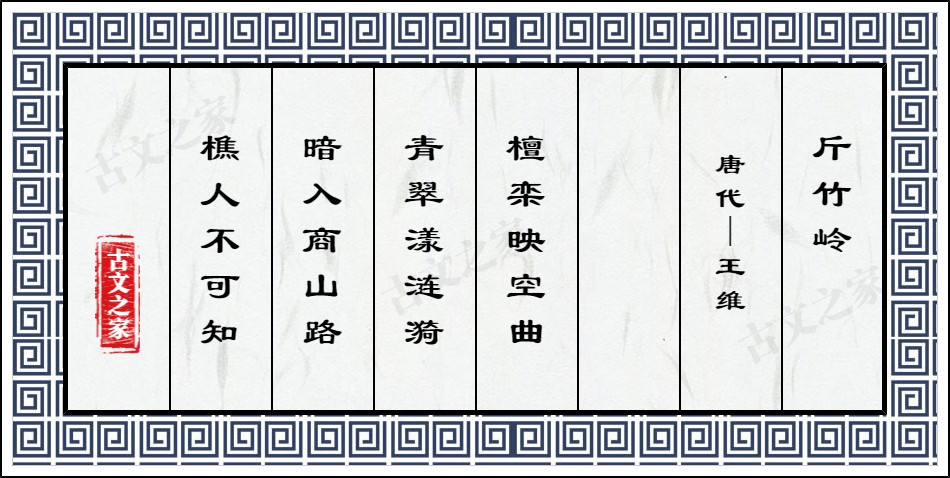 斤竹岭
唐代—王维
檀栾映空曲
青翠漾涟漪
暗入商山路
樵人不可知
古文之家
古文之家
古文之家
古文之家